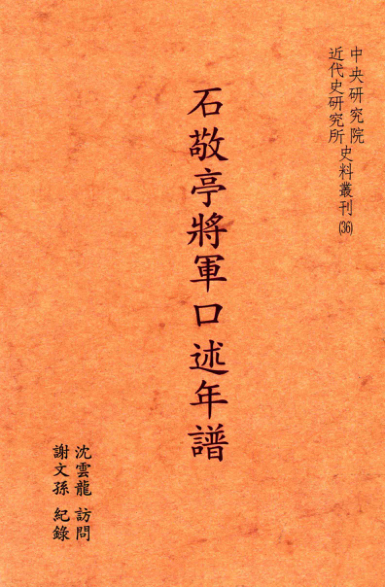 中央研究院
近代史研究所
史料叢刊(36)
石敬亭將軍口述年譜
沈雲龍 訪問
謝文孫 紀錄